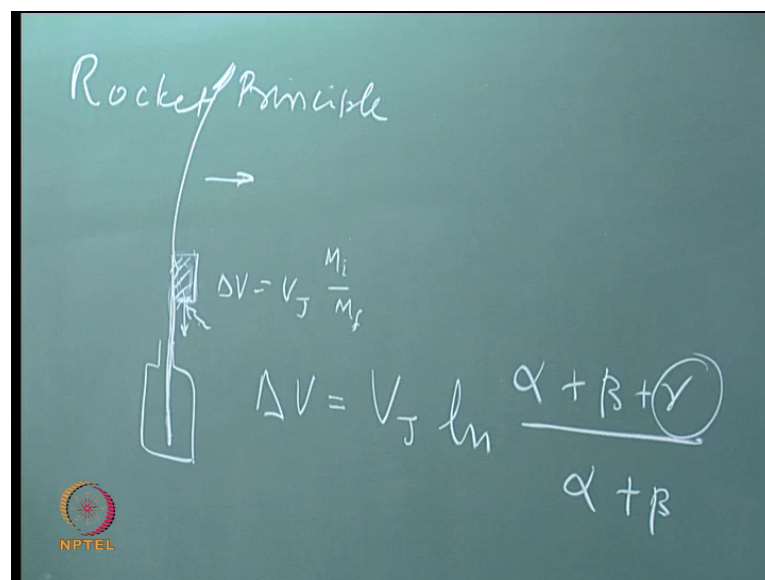 Rocket Principle
ΔV = V_J M_i / M_f
ΔV = V_J ln (α + β + γ) / (α + β)
NPTEL